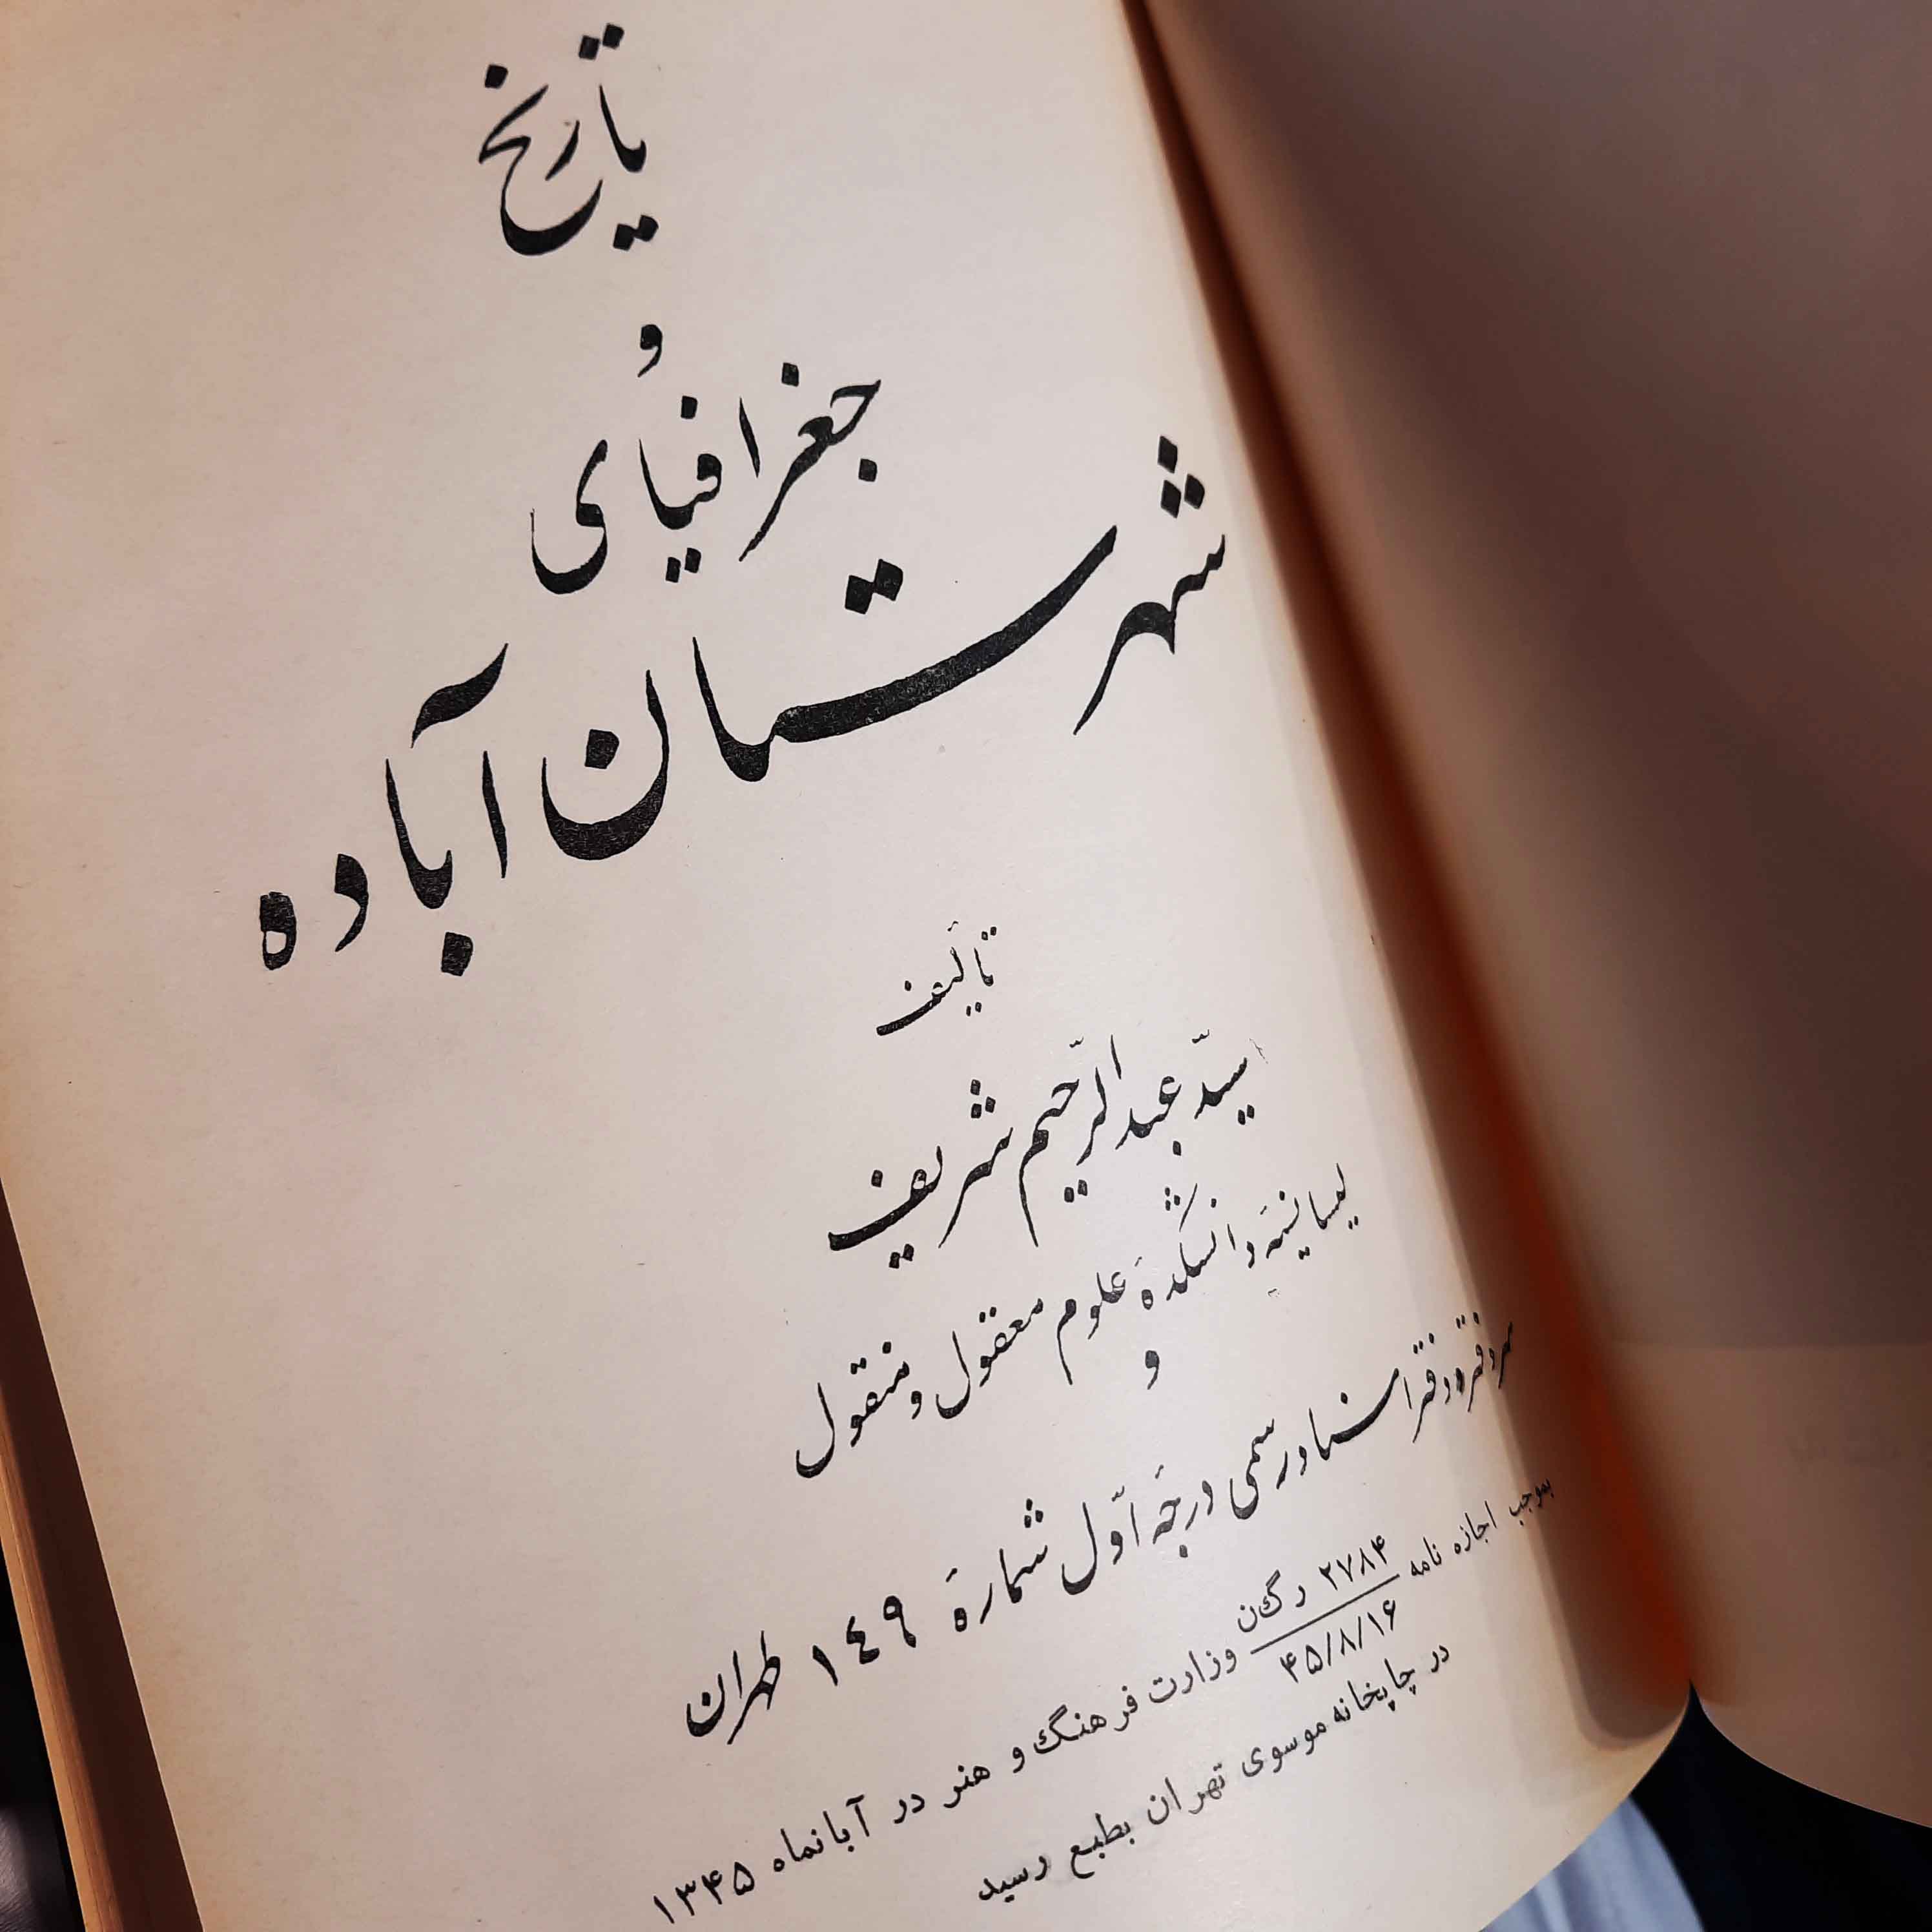 تاریخ
و
جغرافیای
شهرستان آباده
تألیف
سیّد عبدالرّحیم شریف
لیسانسیه دانشکدهٔ علوم معقول و منقول
و
سردفتر دفتر اسناد رسمی درجهٔ اوّل شمارهٔ ١٤٩ طهران
بموجب اجازه نامه ۲۷۸۴ ر گ‌ن / ۴۵/۸/۱۶ وزارت فرهنگ و هنر در آبانماه ۱۳۴۵
در چاپخانه موسوی تهران بطبع رسید